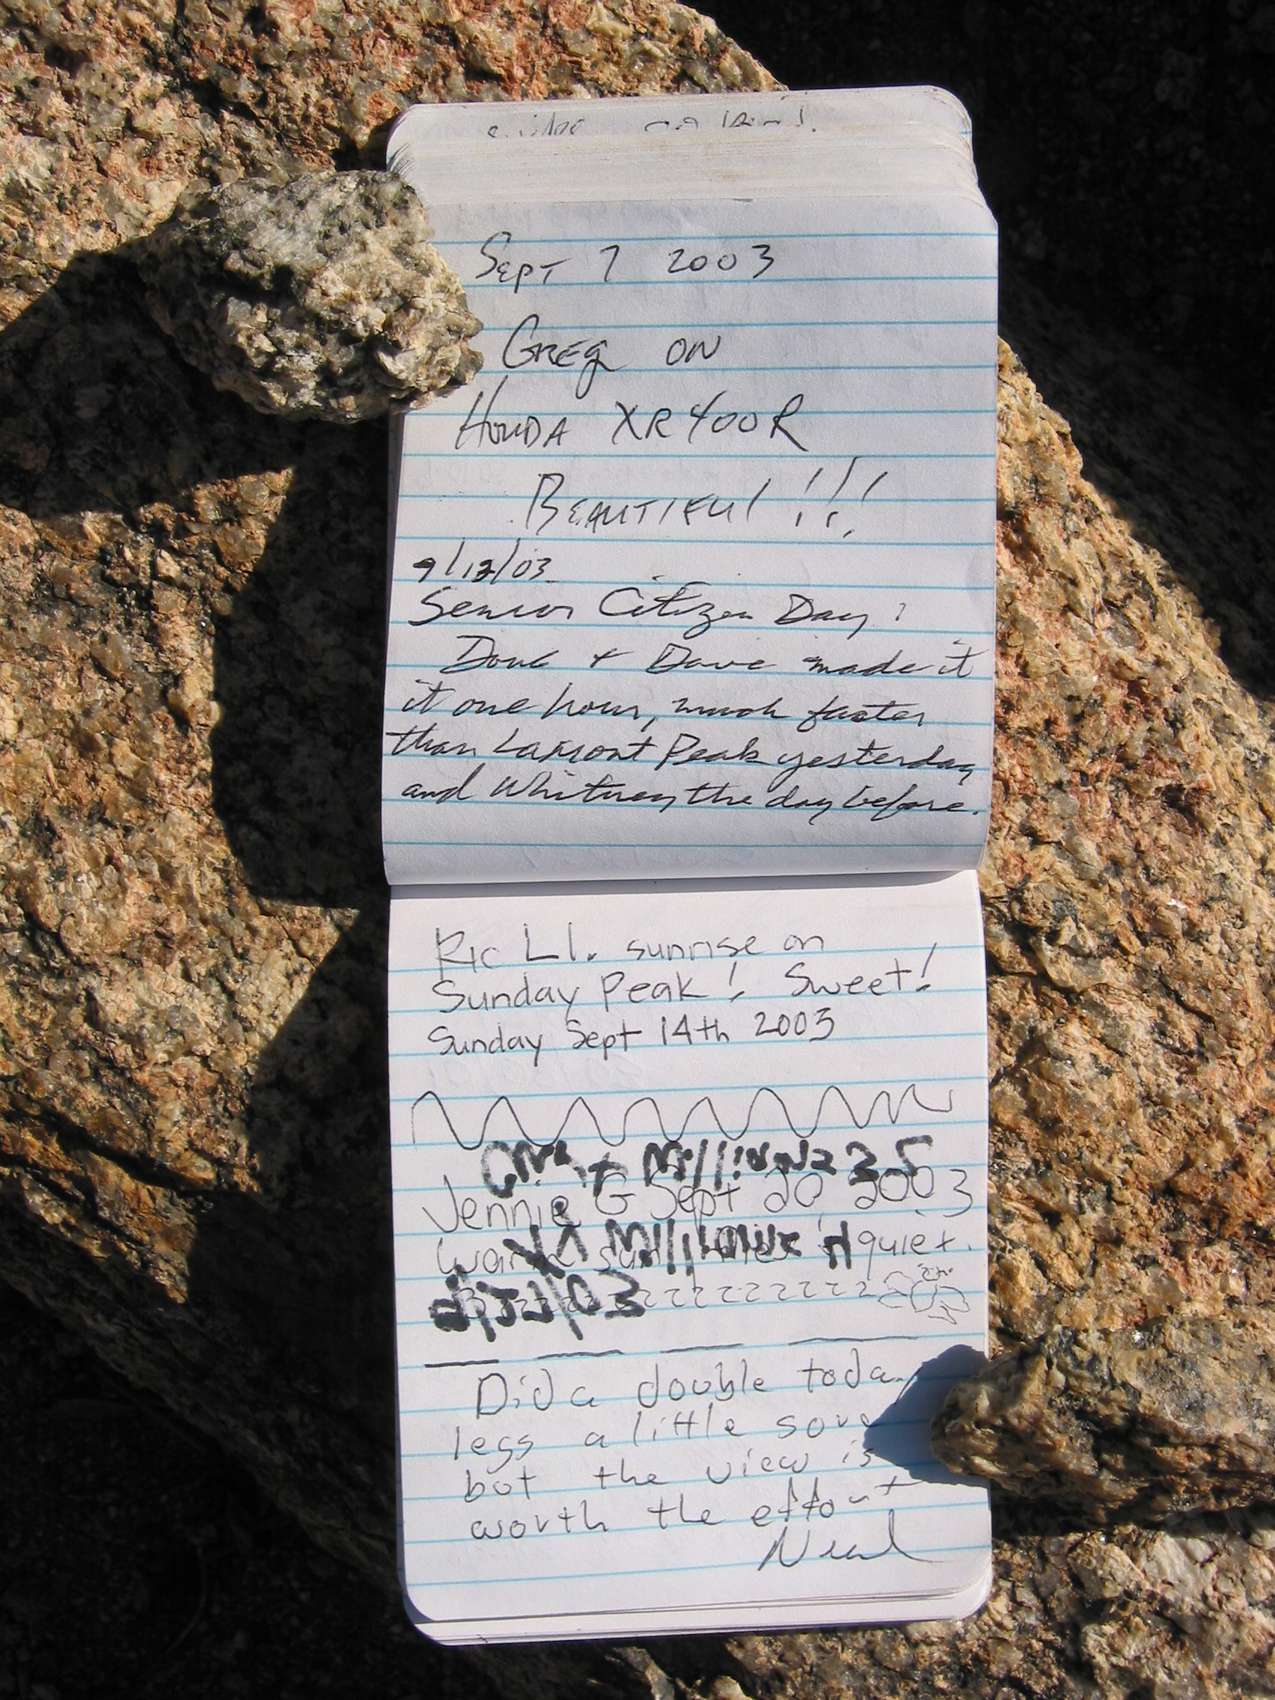 Sept 7 2003
Greg on
Honda XR400R
Beautiful !!!
9/12/03
Senior Citizen Day:
Doug + Dave made it
it one hour, much faster
than Lamont Peak yesterday
and Whitney the day before.
Ric Ll. sunrise on
Sunday Peak! Sweet!
Sunday Sept 14th 2003
Jennie G Sept 20, 2003
quiet.
Did a double today
legs a little sore
but the view is
worth the effort
Neal